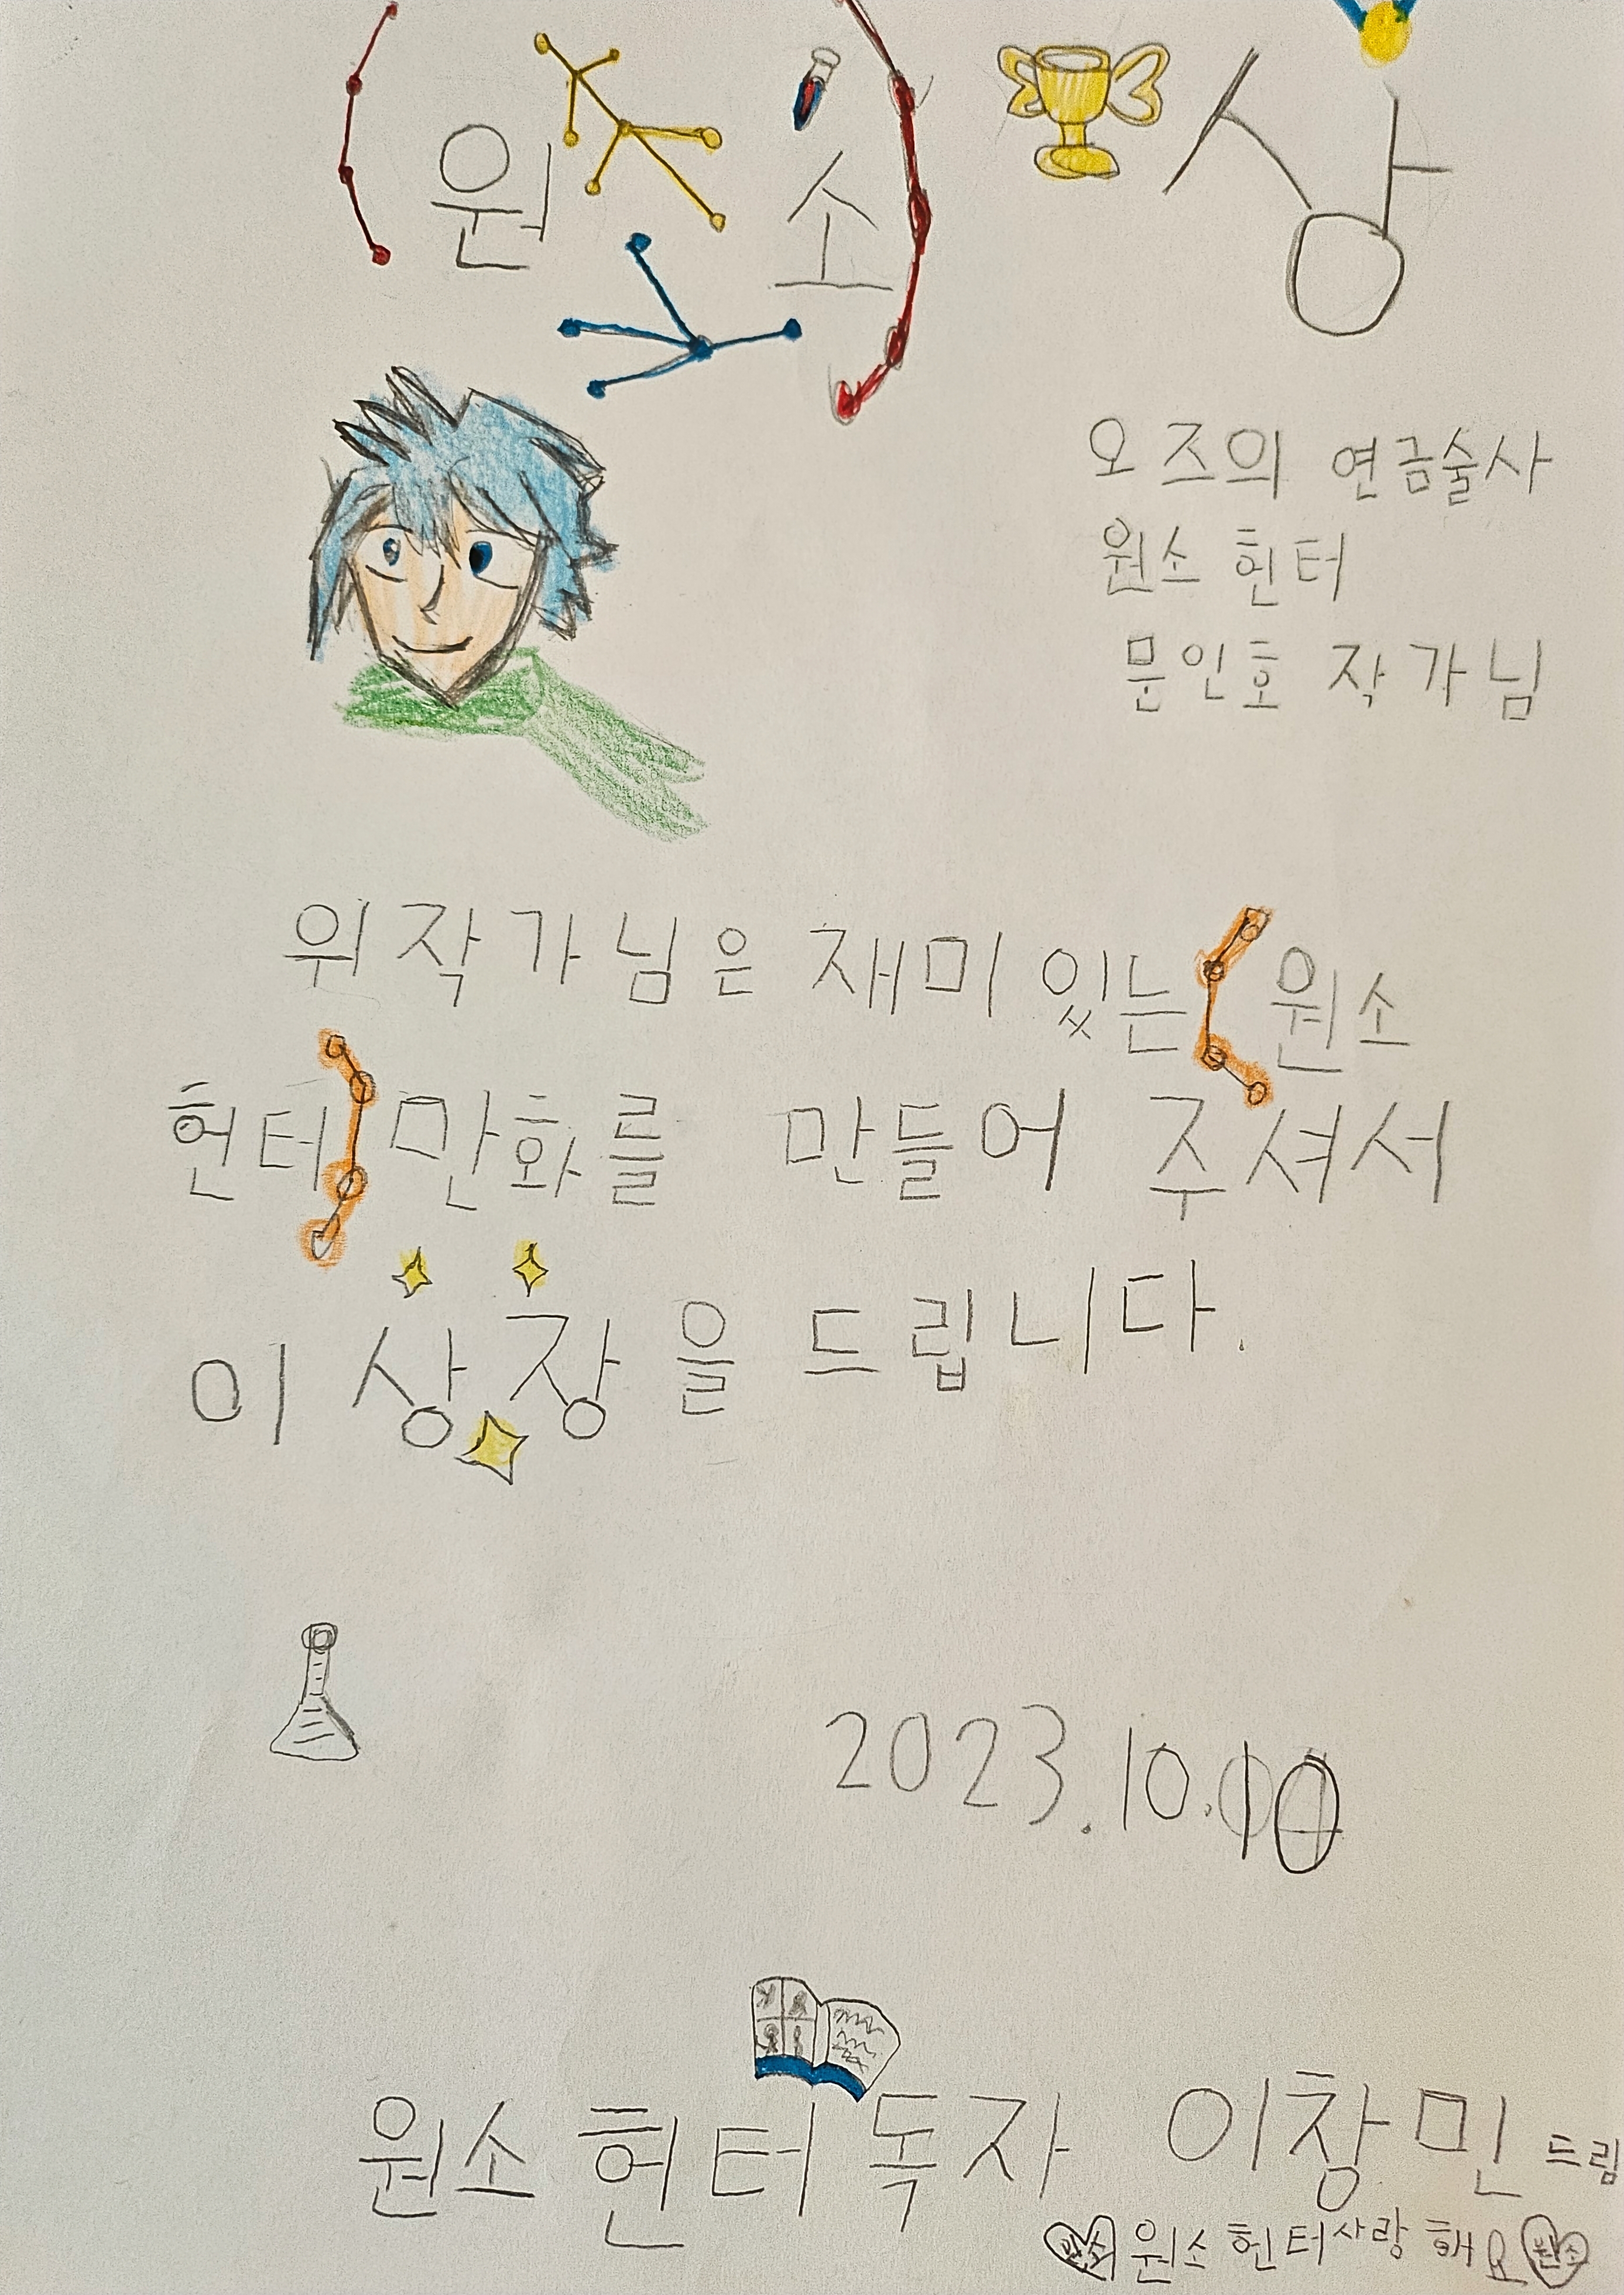 원소 상
오즈의 연금술사
원소 헌터
문인호 작가님
위 작가님은 재미있는 원소
헌터 만화를 만들어 주셔서
이 상장을 드립니다.
2023.10.10
원소 헌터 독자 이창민 드림
원소 원소 헌터 사랑해요 원소